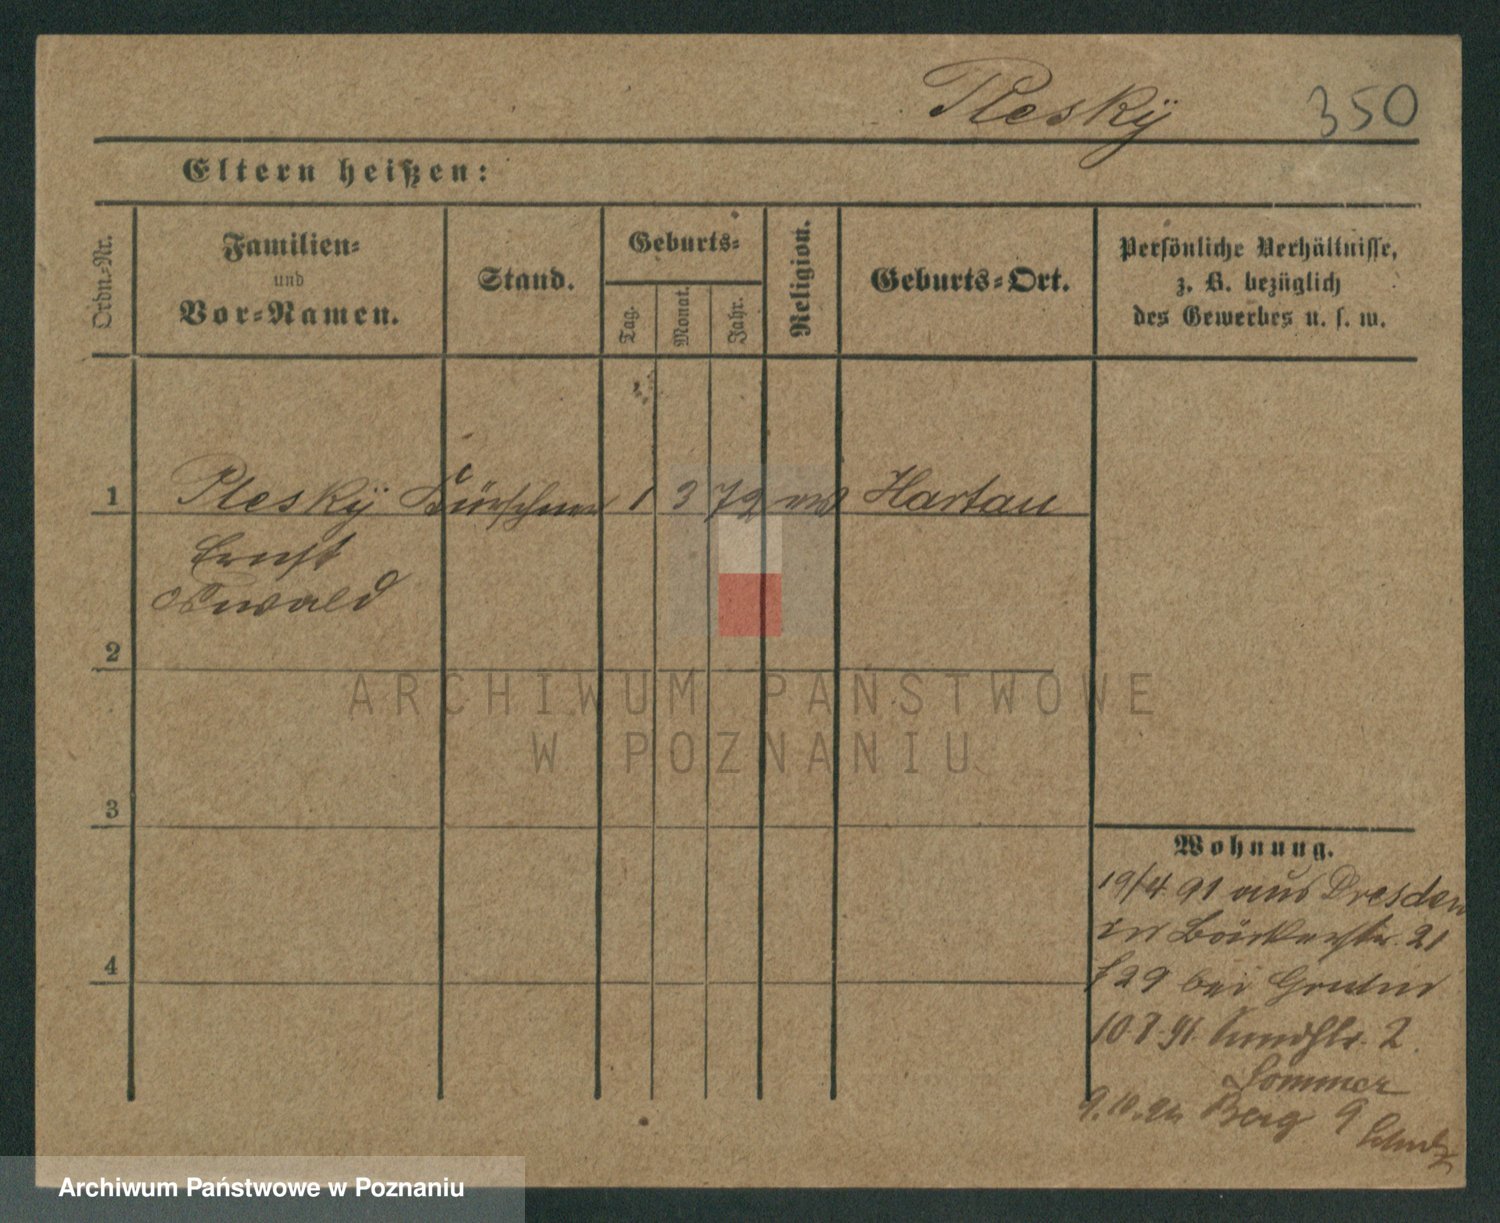 Pleský 350
Eltern heißen:
Ordn.-Nr.
Familien-
und
Vor-Namen.
Stand.
Geburts-
Tag.
Monat.
Jahr.
Religion.
Geburts-Ort.
Persönliche Verhältnisse,
z. B. bezüglich
des Gewerbes u. s. w.
1 Pleský Kürschner 1 3 72 ev Hartau
Ernst
Oswald
2
3
4
ARCHIWUM PAŃSTWOWE
W POZNANIU
Wohnung.
19/4 91 aus Dresden
in Bäckerstr. 21
729 bei
10.8.91 2
Sommer
9.10. Berg 9
Archiwum Państwowe w Poznaniu